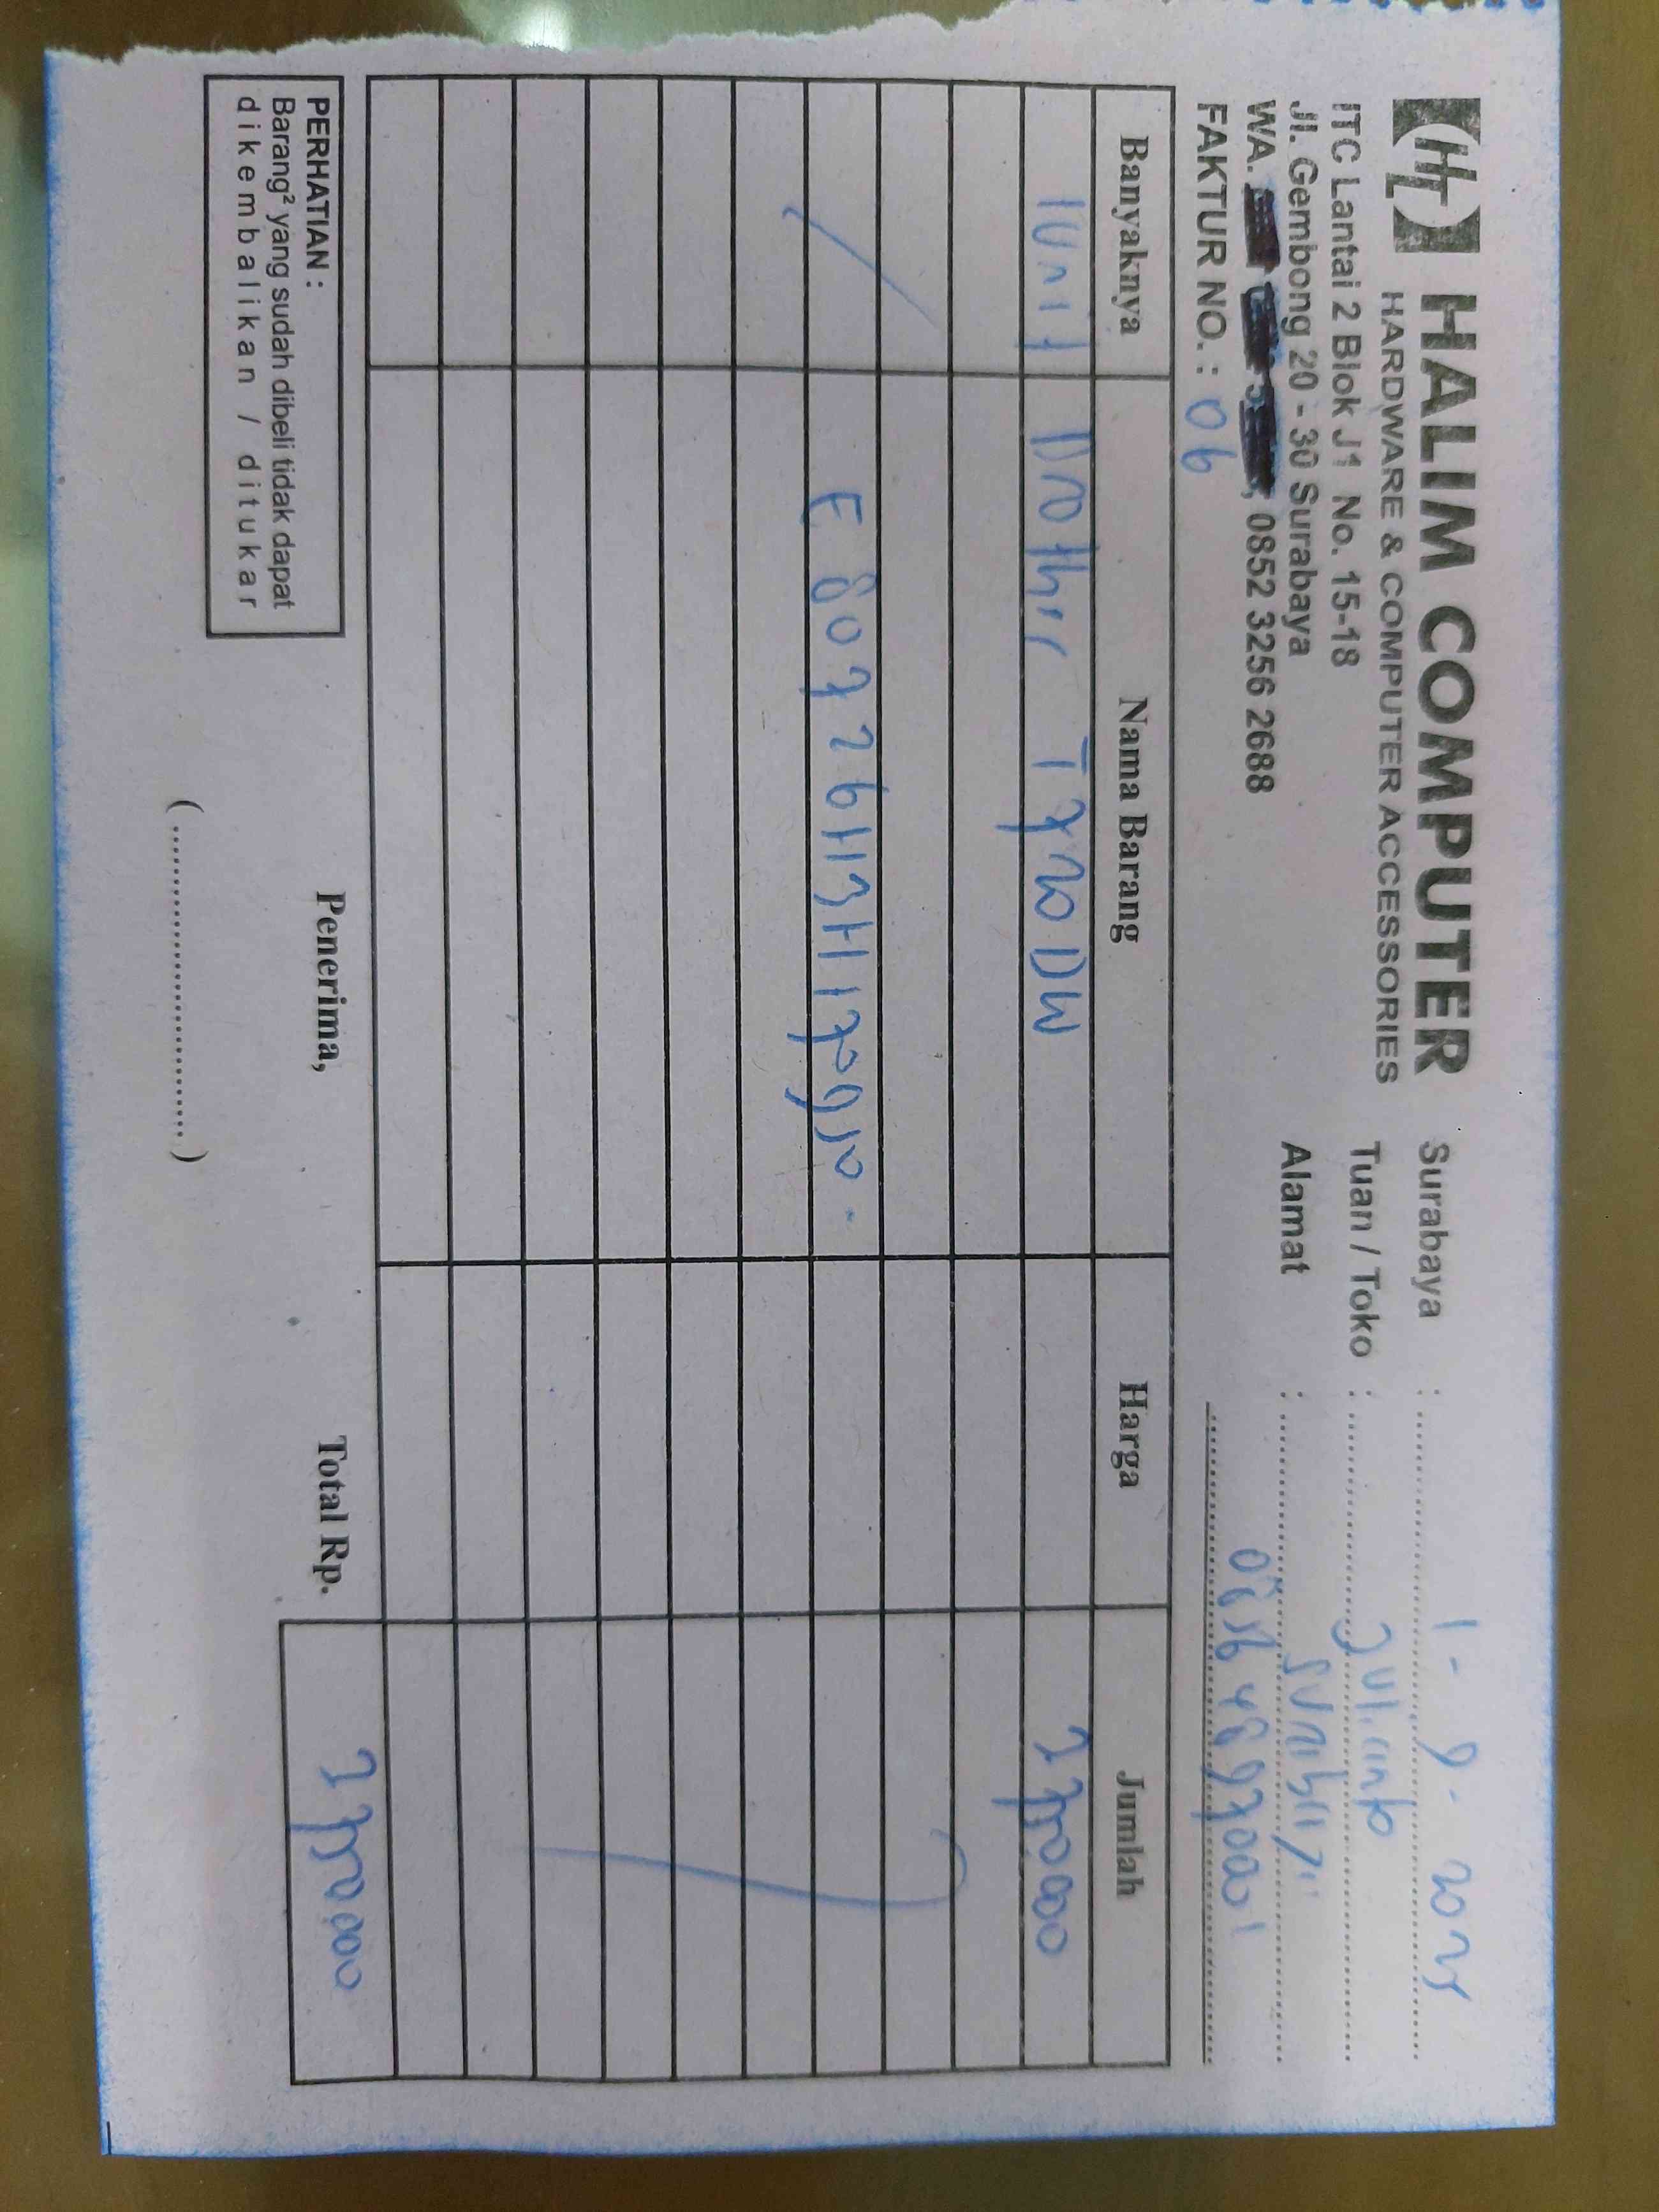 HALIM COMPUTER
HARDWARE & COMPUTER ACCESSORIES
ITC Lantai 2 Blok J1 No. 15-18
Jl. Gembong 20 - 30 Surabaya
WA. 0852 3256 2688
FAKTUR NO. : 06
Surabaya : 1 - 9 - 2025
Tuan / Toko : Julianto
Alamat : Surabaya
Banyaknya Nama Barang Harga Jumlah
1 Unit Brother T720DW
PERHATIAN :
Barang² yang sudah dibeli tidak dapat
dikembalikan / ditukar
Penerima,
Total Rp.
(.................................)